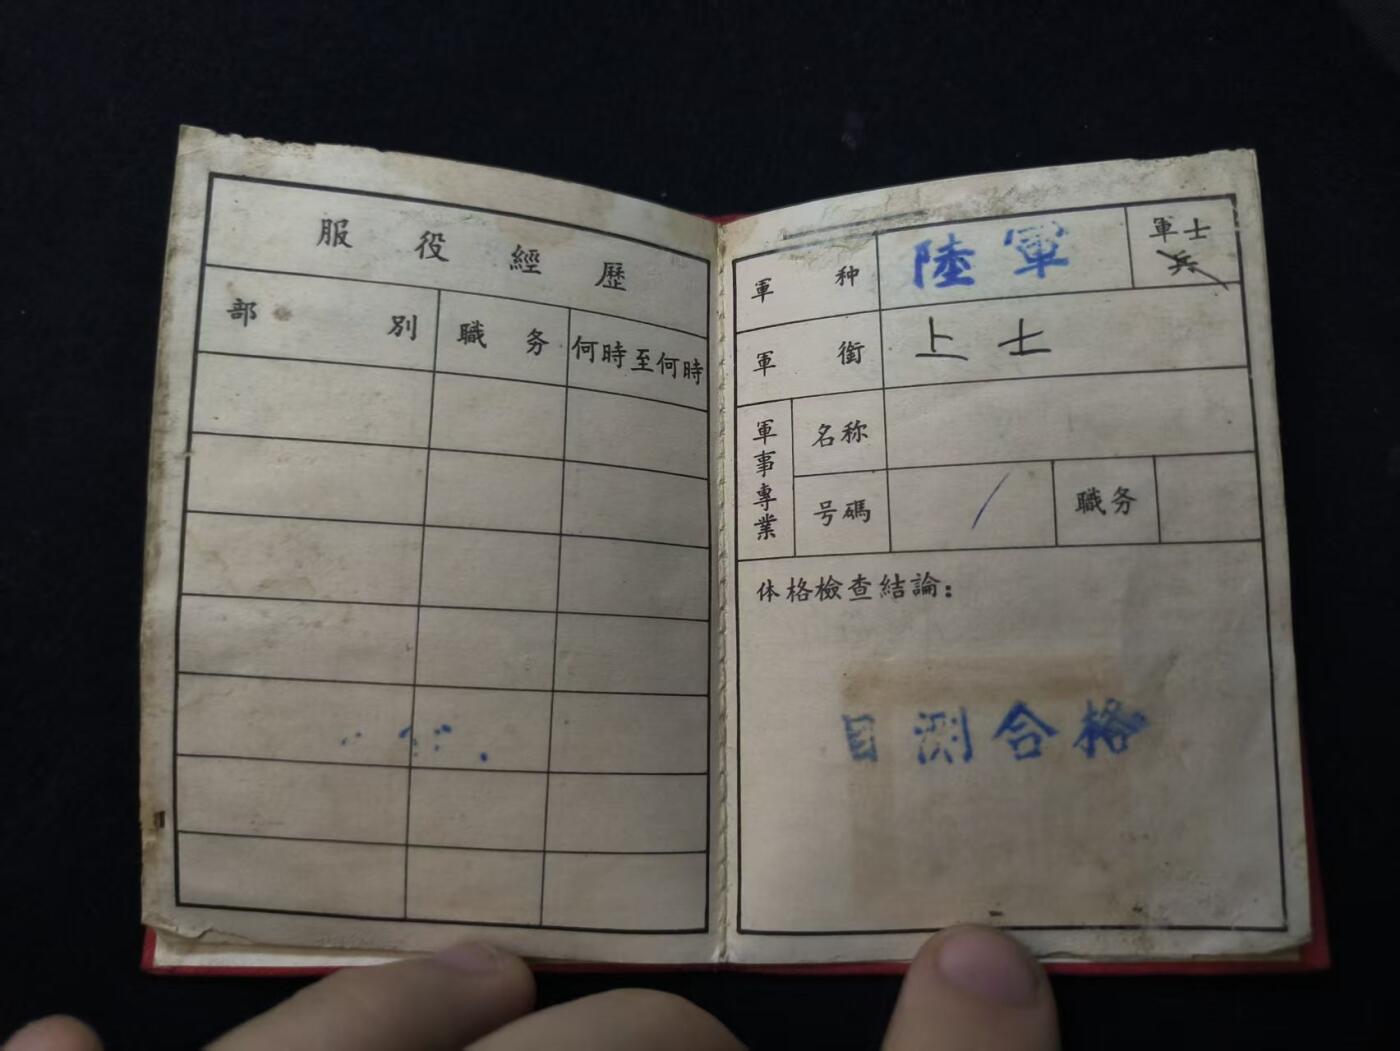 服役經歷
部別 職务 何時至何時
軍种 陸軍 軍士
兵
軍銜 上士
軍事專業 名称
号碼 / 職务
体格檢查結論：
目测合格